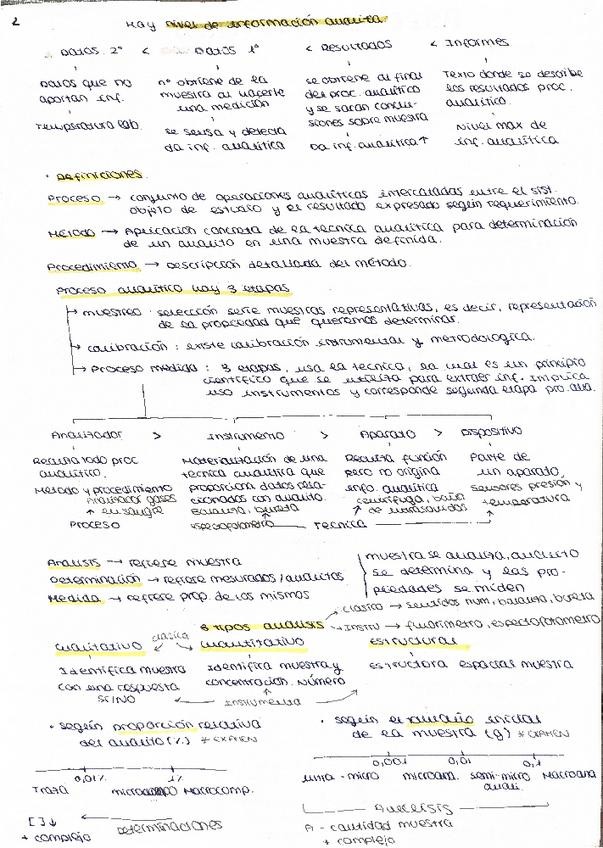 2
Hay nivel de información analítica.
Datos 2° < Datos 1° < Resultados < Informes
Datos que no aportan inf.
Temperatura lab.
n° obtiene de la muestra al hacerle una medición
se sensa y detecta da inf. analítica
se obtiene al final del proc. analítico y se sacan conclusiones sobre muestra
Da inf. analítica ↑
Texto donde se describe los resultados proc. analítico.
Nivel max de inf. analítica
· Definiciones.
Proceso → conjunto de operaciones analíticas intercaladas entre el sist.
objeto de estudio y el resultado expresado según requerimiento.
Método → Aplicación concreta de la técnica analítica para determinación
de un analito en una muestra definida.
Procedimiento → Descripción detallada del método.
Proceso analítico hay 3 etapas
→ muestreo: selección serie muestras representativas, es decir, representación
de la propiedad que queremos determinar.
→ calibración: existe calibración instrumental y metodológica.
→ Proceso medida: 3 etapas, usa la técnica, la cual es un principio
científico que se utiliza para extraer inf. Implica
uso instrumentos y corresponde segunda etapa pro. ana.
Analizador > Instrumento > Aparato > Dispositivo
Realiza todo proc analítico.
Método y procedimiento
Analizador gases en sangre
Proceso
Materialización de una técnica analítica que proporciona datos relacionados con analito.
Balanza, bureta
espectofotómetro
Realiza función pero no origina info. analítica
centrífuga, baño de ultrasonidos
Técnica
Parte de un aparato.
sensores presión y temperatura
Análisis → refiere muestra
Determinación → refiere mesurados/analitos
Medida → refiere prop. de los mismos
muestra se analiza, analito
se determina y las propiedades se miden
3 tipos análisis
clásica → sentidos hum, balanza, bureta
Instru → fluorímetro, espectofotómetro
cualitativo clásica cuantitativo estructural
Identifica muestra con una respuesta SI/NO
Identifica muestra y concentración. Número
Estructura espacial muestra
Instrumental
· según proporción relativa
del analito (%) * EXAMEN
0,01% 1%
Traza microcomp Macrocomp.
[ ] ↓
+ complejo
Determinaciones
· según el tamaño inicial
de la muestra (g) * EXAMEN
0,001 0,01 0,1
ultra-micro microana. semi-micro anali. Macroana
Análisis
- cantidad muestra
+ complejo